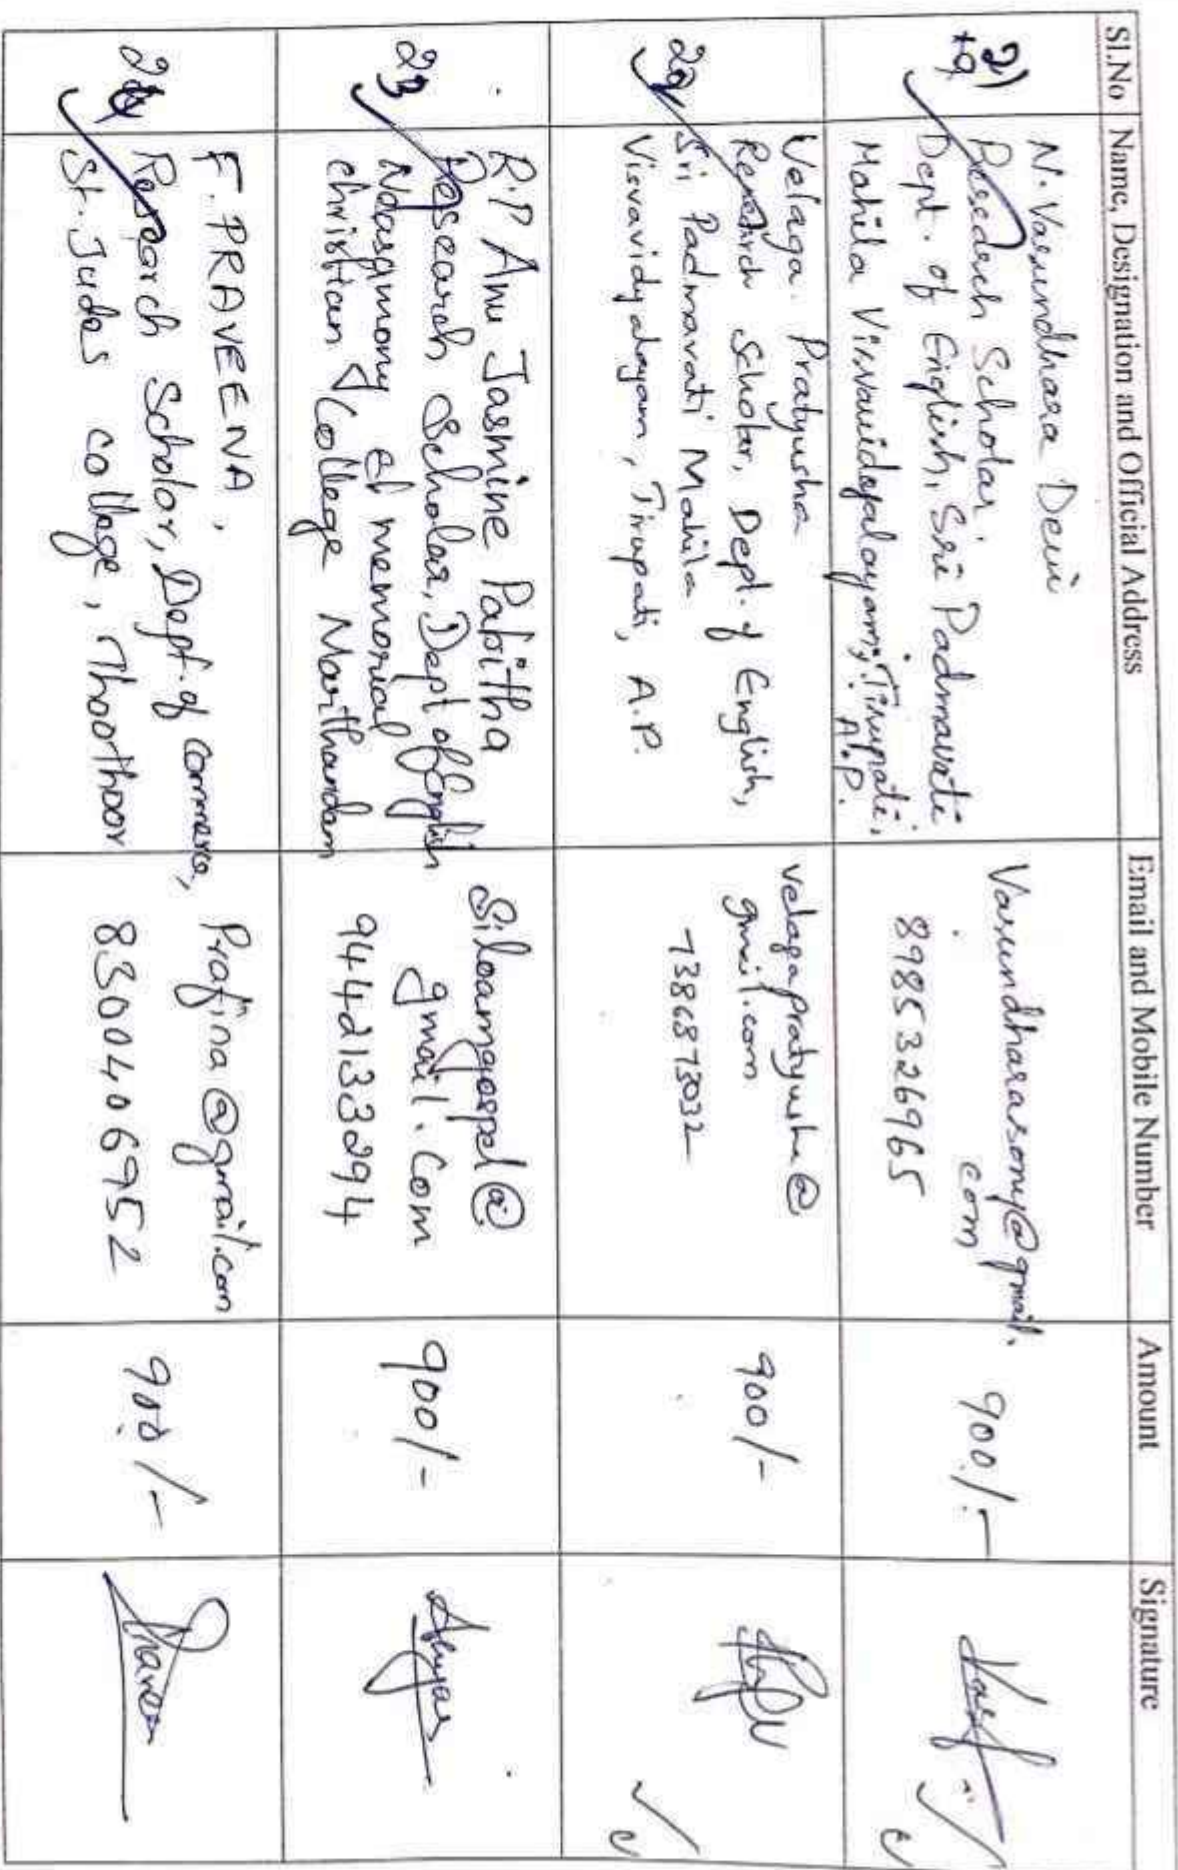 Sl.No Name, Designation and Official Address Email and Mobile Number Amount Signature
21)
N. Vasundhara Devi
Research Scholar,
Dept. of English, Sri Padmavati
Mahila Visvavidyalayam, Tirupati,
A.P.
Vasundharasony@gmail.
com
8985326965
900/-
22
Velaga. Pratyusha
Research Scholar, Dept. of English,
Sri Padmavati Mahila
Visvavidyalayam, Tirupati, A.P.
velagapratyusha@
gmail.com
7386873032
900/-
23
R.P Anu Jasmine Pabitha
Research Scholar, Dept of English
Nesamony memorial
christian College Marthandam
Siloamgospel@
gmail.com
9442133294
900/-
24
F. PRAVEENA,
Research Scholar, Dept. of commerce,
St. Judes college, Thoothoor
Prafina@gmail.com
8300406952
900/-